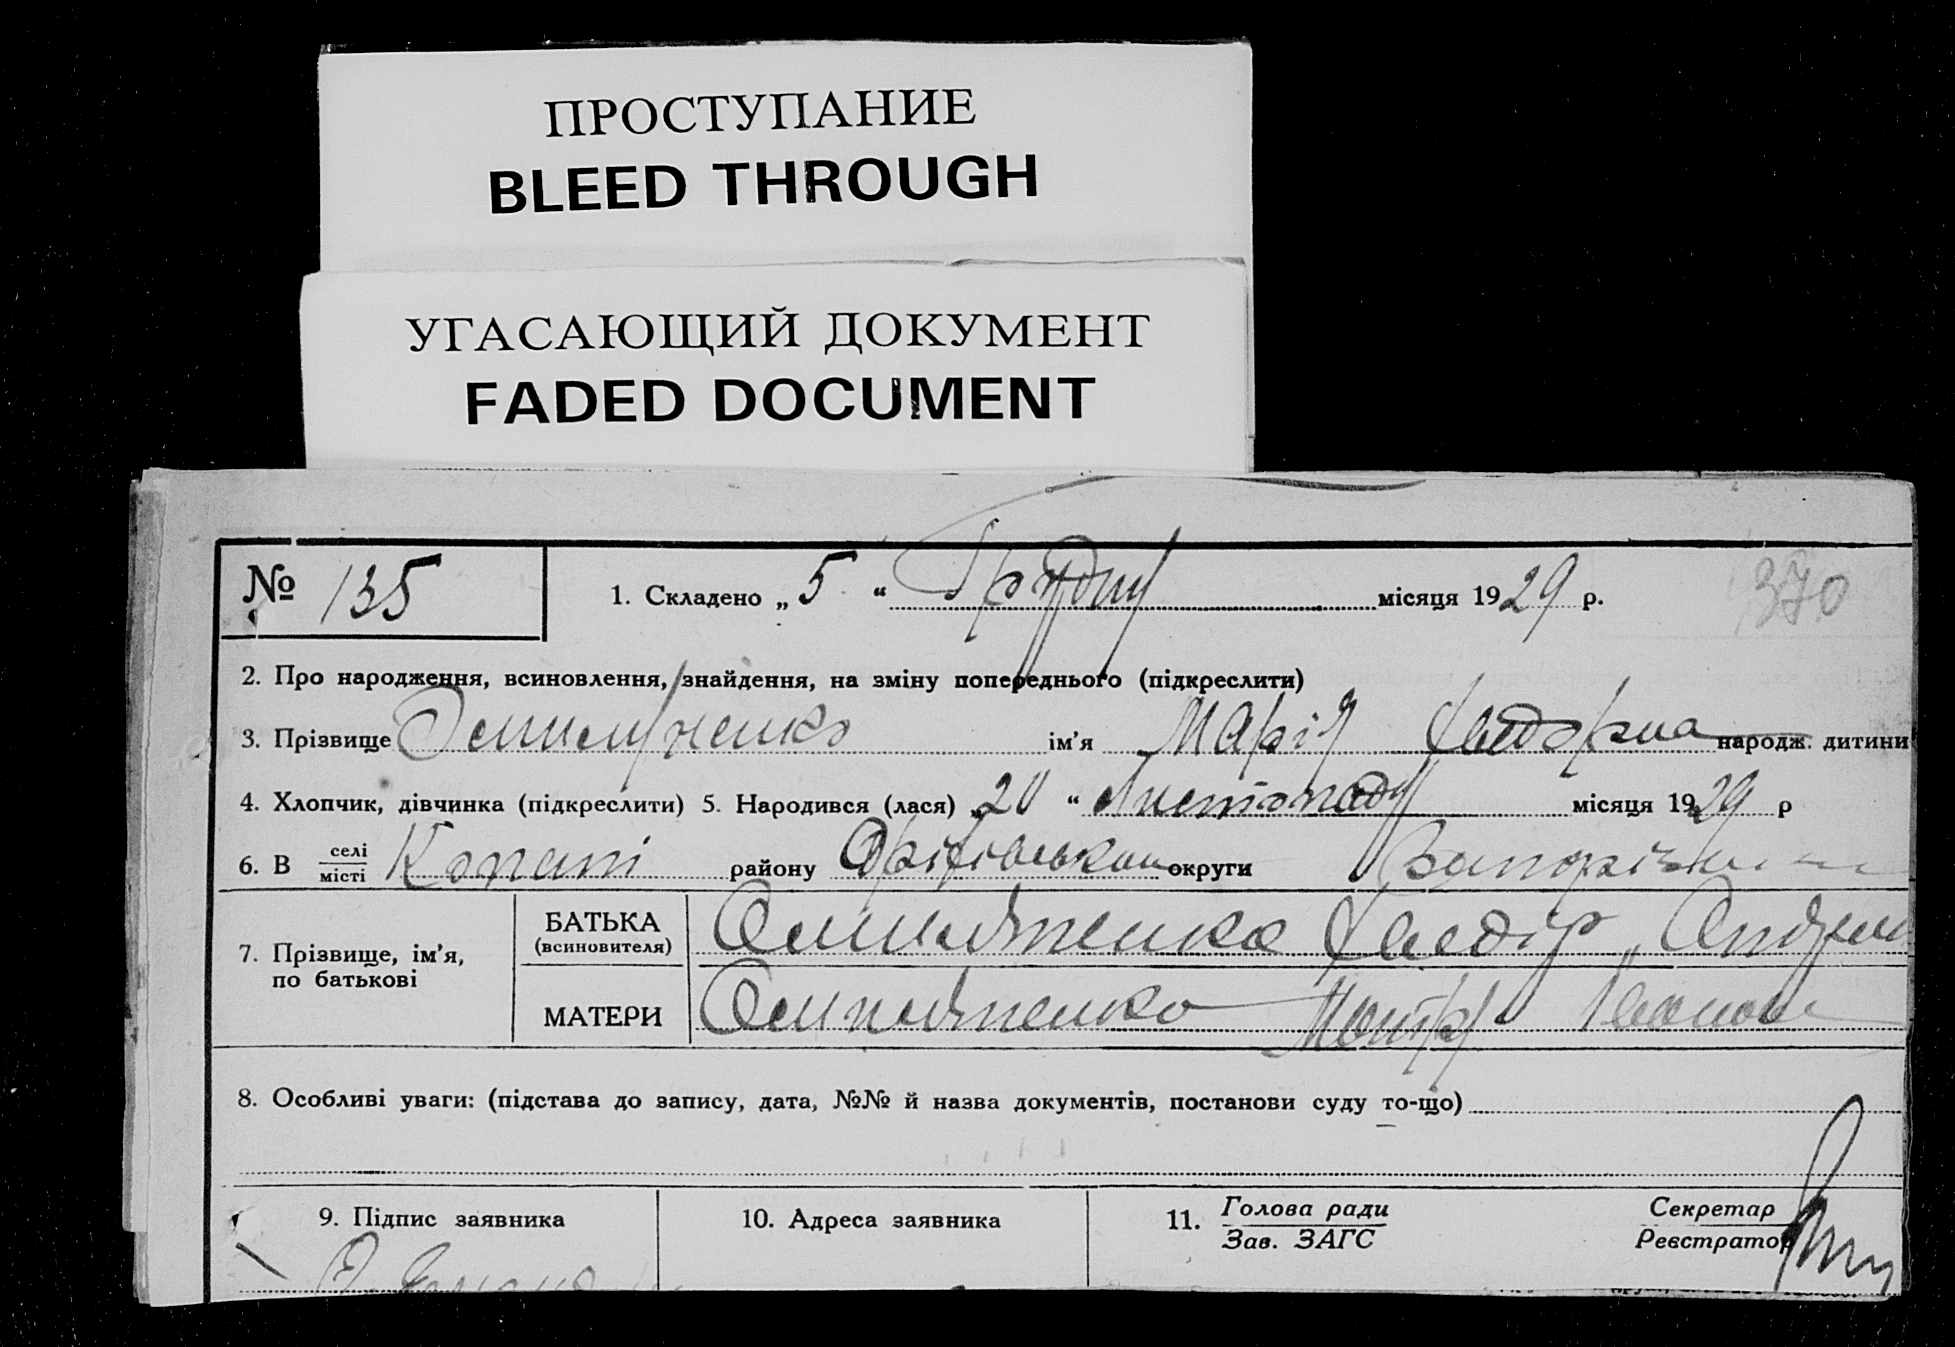 ПРОСТУПАНИЕ
BLEED THROUGH
УГАСАЮЩИЙ ДОКУМЕНТ
FADED DOCUMENT
№ 135 1. Складено „ 5 “ Грудня місяця 1929 р. 370
2. Про народження, всиновлення, знайдення, на зміну попереднього (підкреслити)
3. Прізвище ім'я Марія Федорівна народж. дитини
4. Хлопчик, дівчинка (підкреслити) 5. Народився (лася) „ 20 “ Листопаду місяця 1929 р
6. В селі місті Копані району Оріхівського округи
7. Прізвище, ім'я, по батькові
БАТЬКА (всиновителя) Федір
МАТЕРИ
8. Особливі уваги: (підстава до запису, дата, №№ й назва документів, постанови суду то-що)
9. Підпис заявника 10. Адреса заявника 11. Голова ради Зав. ЗАГС Секретар Реєстратор